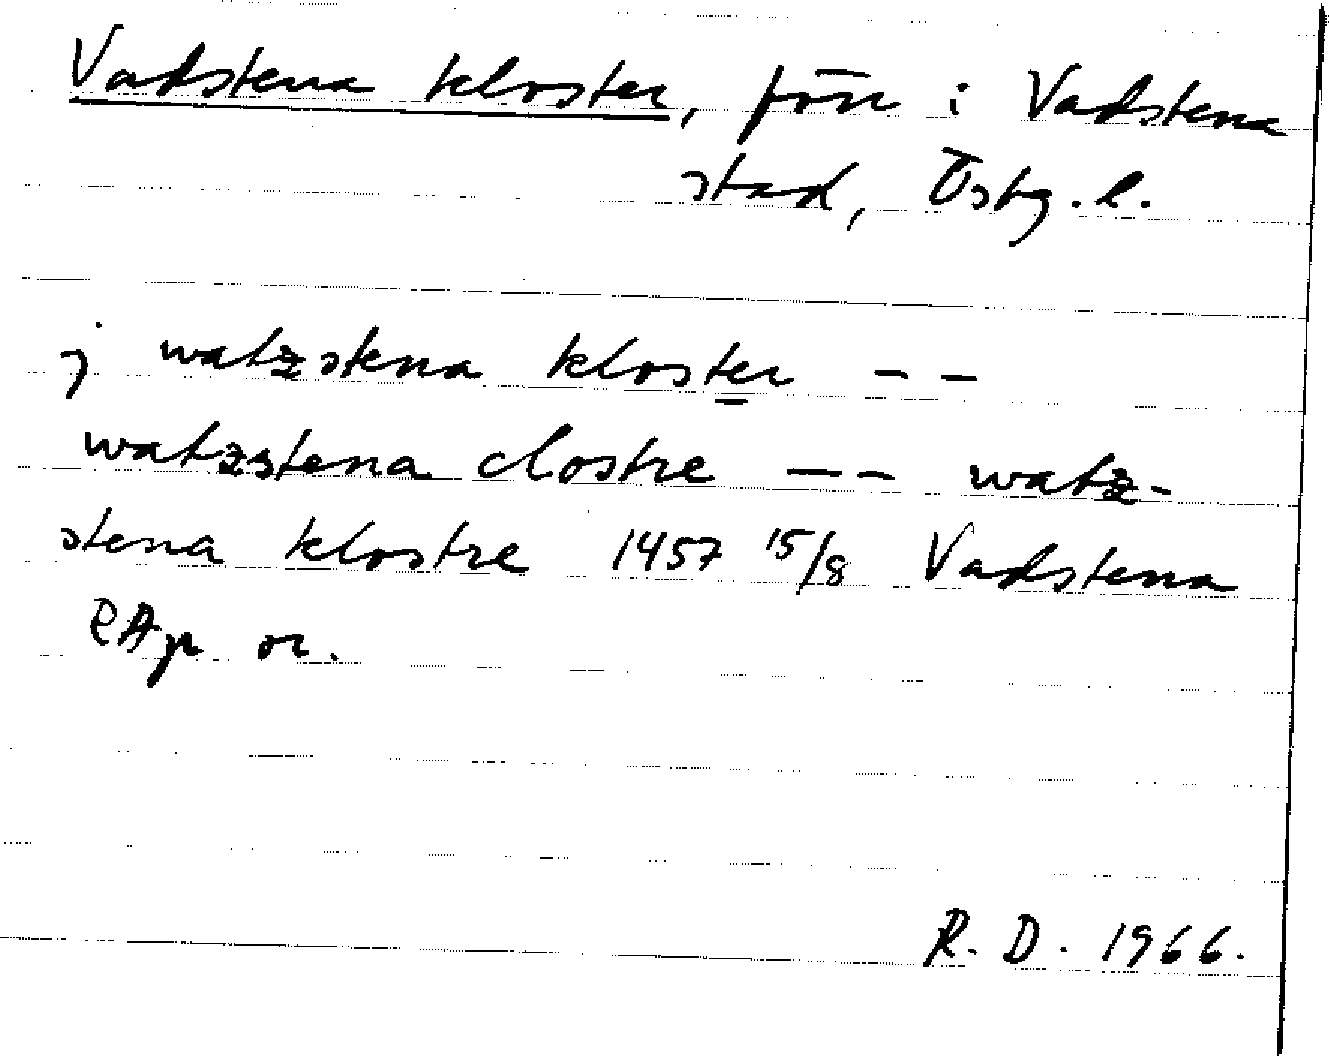 Vadstena kloster, förr i Vadstena
stad, Östg. l.
j watzstena kloster — —
watzstena clostre — — watz-
stena klostre 1457 15/8 Vadstena
RAp or.
R. D. 1966.